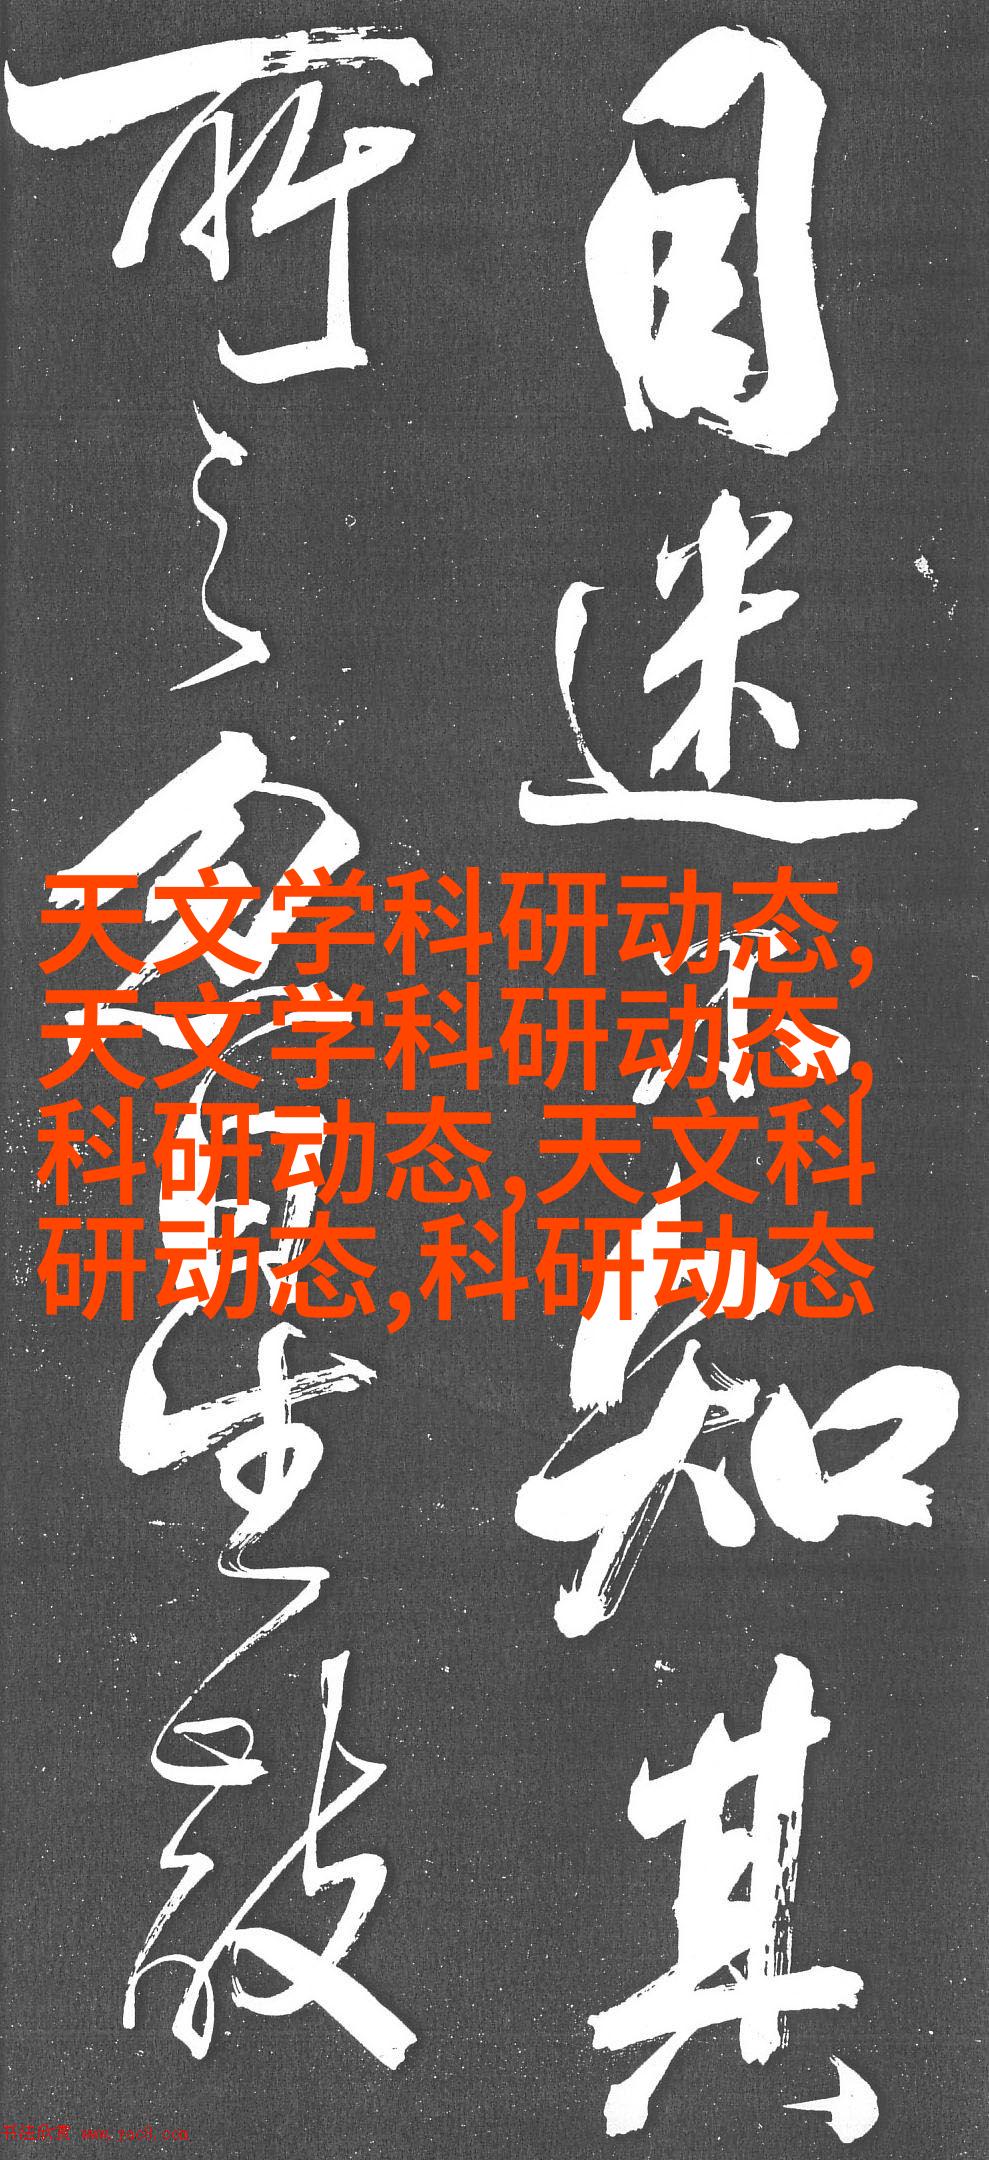 目迷不知其
所之魚自生敲
天文学科研动态,
天文学科研动态,
科研动态,天文科
研动态,科研动态
书法欣赏 www.yac8.com